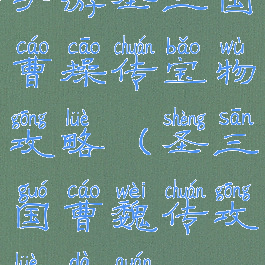 cáo cāo chuán bǎo wù
曹操传宝物
gōng lüè shèng sān
攻略（圣三
guó cáo wèi chuán gōng
国曹魏传攻
lüè dà quán